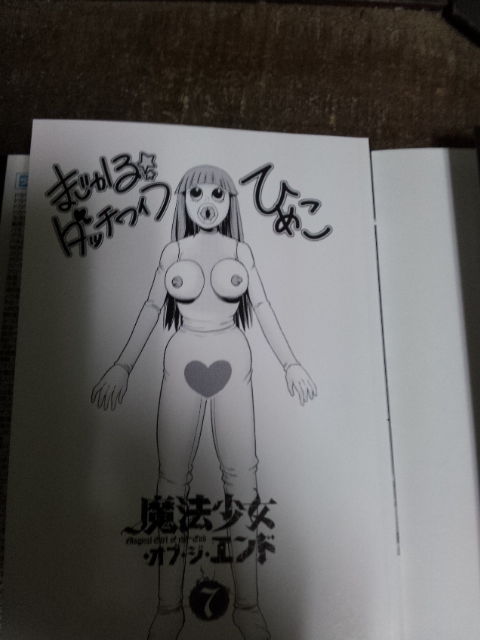 まじかる☆
ダッチワイフ
ひめこ
魔法少女
Magical Girl of the End
・オブ・ジ・エンド
7